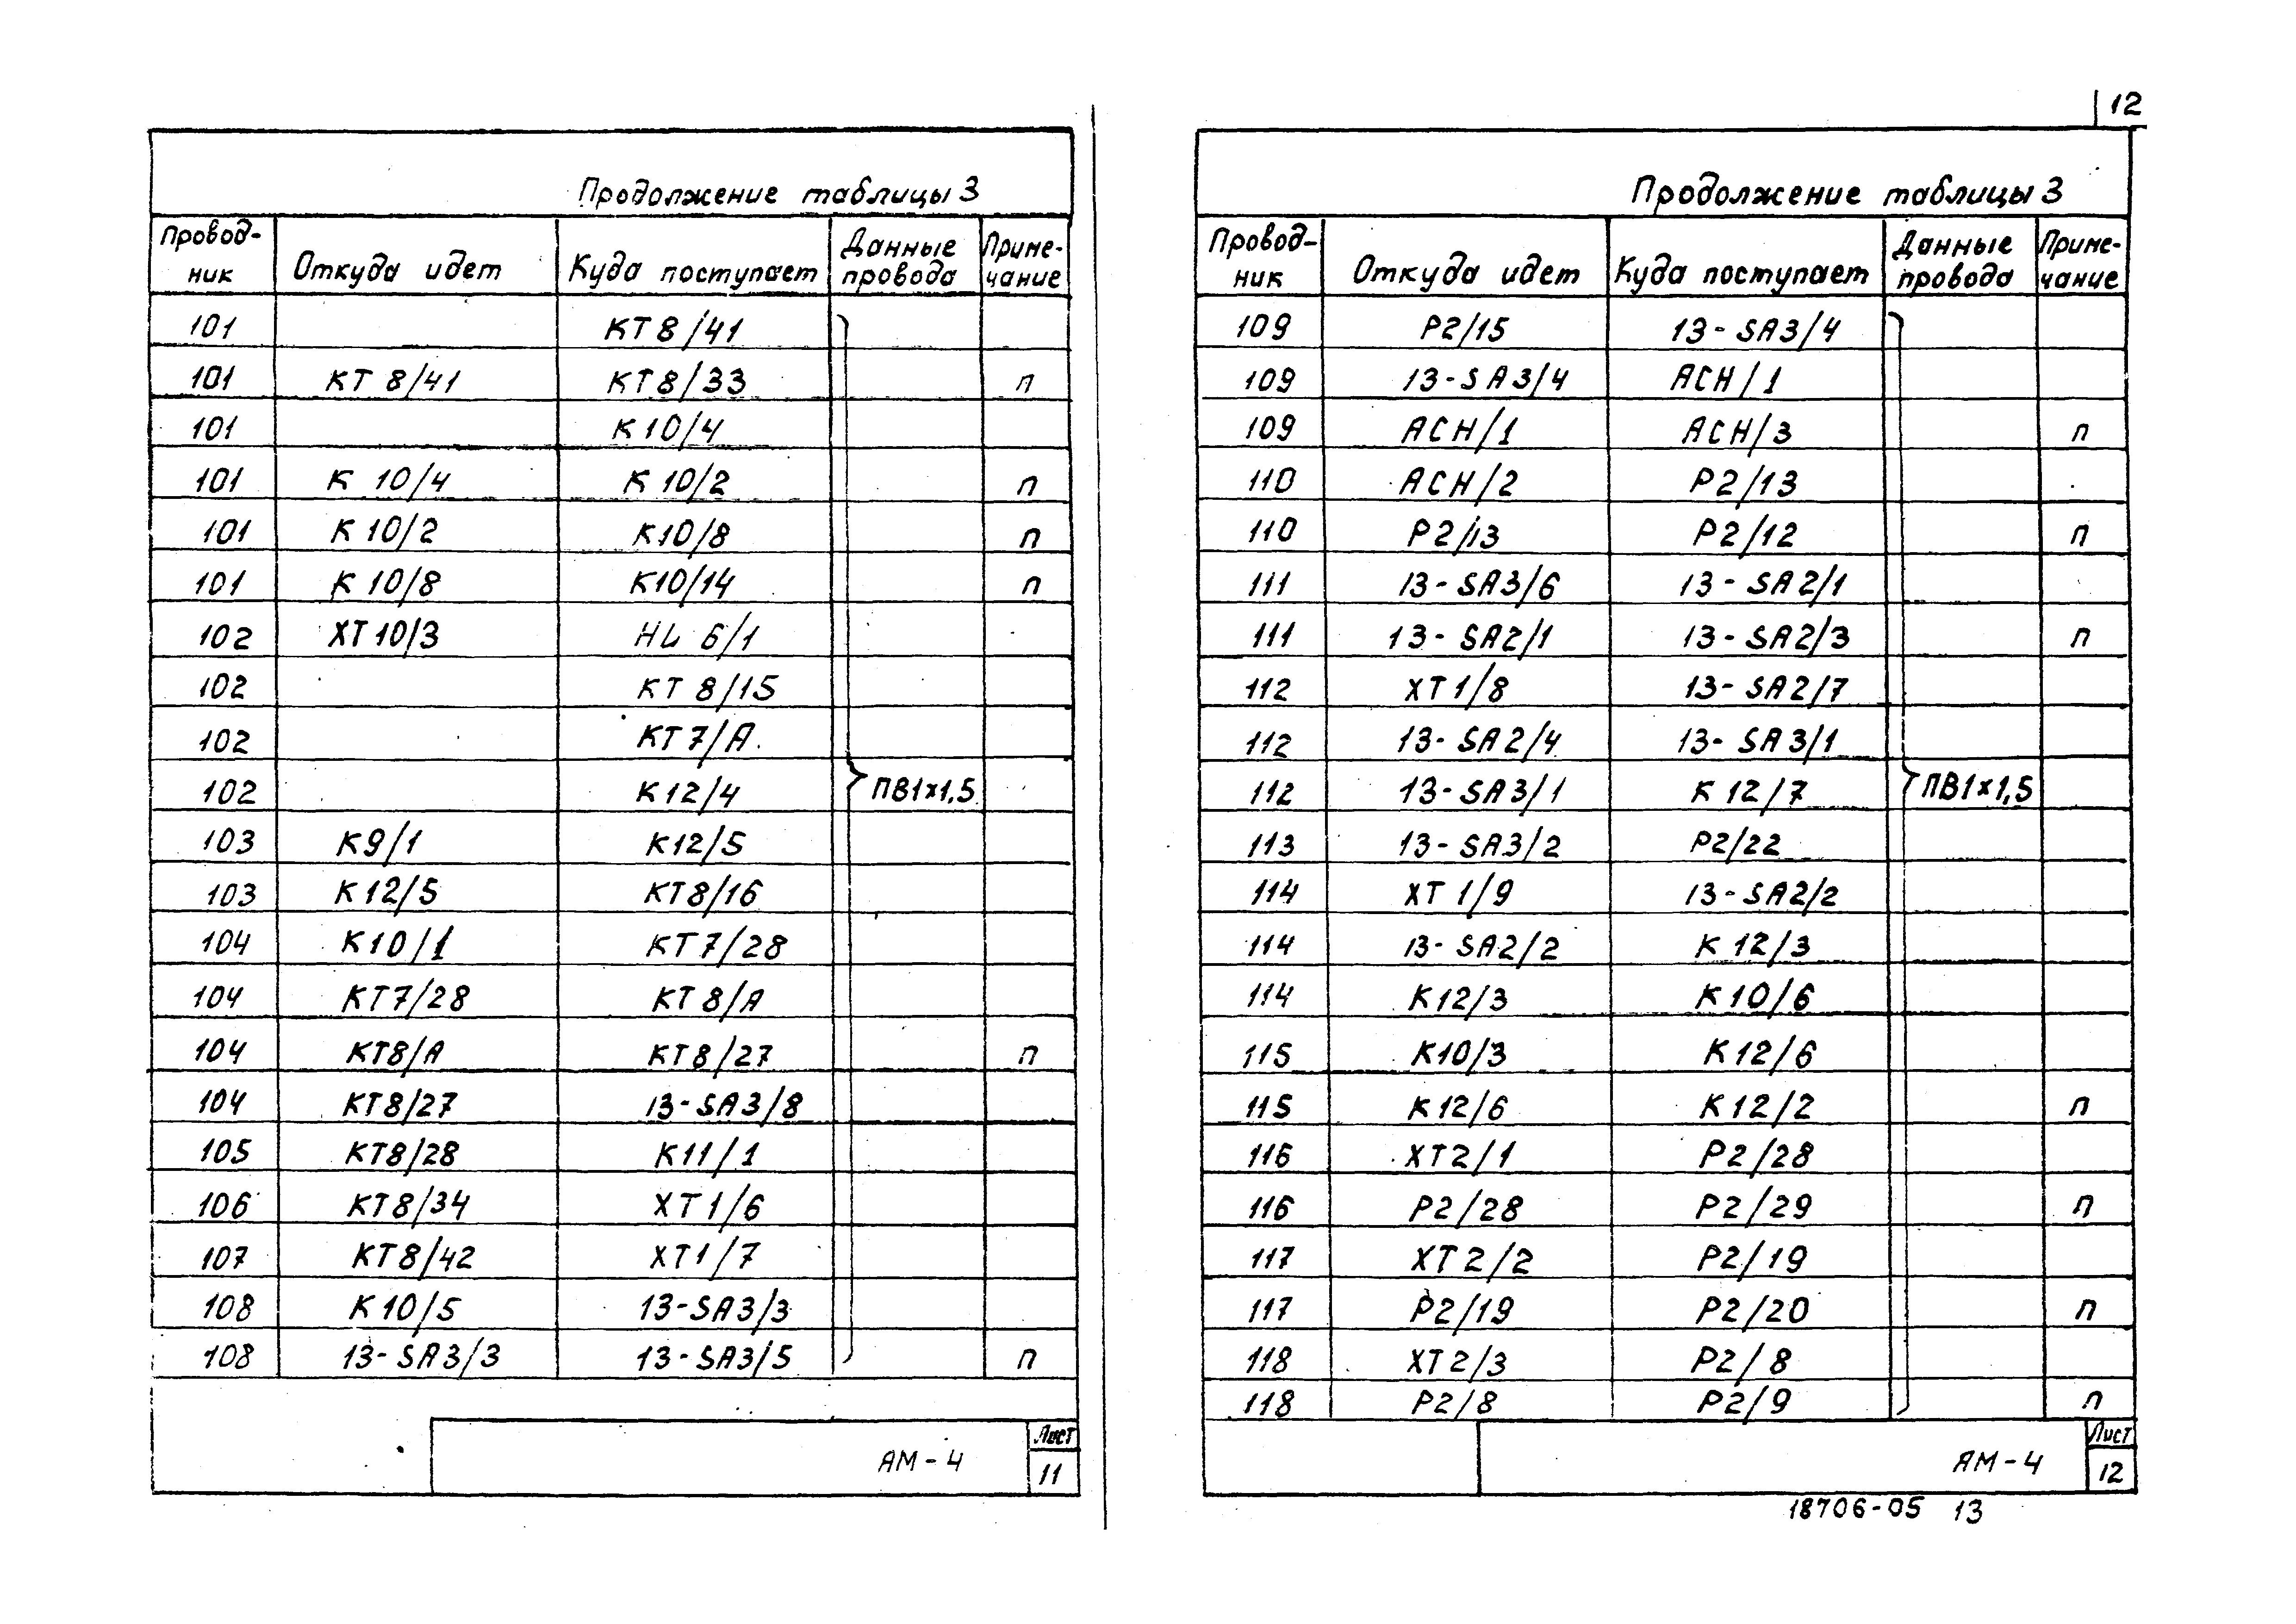 12
Продолжение таблицы 3
Провод-ник Откуда идет Куда поступает Данные провода Приме-чание
101 КТ8/41
101 КТ8/41 КТ8/33 п
101 К10/4
101 К10/4 К10/2 п
101 К10/2 К10/8 п
101 К10/8 К10/14 п
102 ХТ10/3 HL6/1
102 КТ8/15
102 КТ7/А
102 К12/4 ПВ1×1,5
103 К9/1 К12/5
103 К12/5 КТ8/16
104 К10/1 КТ7/28
104 КТ7/28 КТ8/А
104 КТ8/А КТ8/27 п
104 КТ8/27 13-SA3/8
105 КТ8/28 К11/1
106 КТ8/34 ХТ1/6
107 КТ8/42 ХТ1/7
108 К10/5 13-SA3/3
108 13-SA3/3 13-SA3/5 п
АМ-4 Лист 11
Продолжение таблицы 3
Провод-ник Откуда идет Куда поступает Данные провода Приме-чание
109 Р2/15 13-SA3/4
109 13-SA3/4 АСН/1
109 АСН/1 АСН/3 п
110 АСН/2 Р2/13
110 Р2/13 Р2/12 п
111 13-SA3/6 13-SA2/1
111 13-SA2/1 13-SA2/3 п
112 ХТ1/8 13-SA2/7
112 13-SA2/4 13-SA3/1
112 13-SA3/1 К12/7 ПВ1×1,5
113 13-SA3/2 Р2/22
114 ХТ1/9 13-SA2/2
114 13-SA2/2 К12/3
114 К12/3 К10/6
115 К10/3 К12/6
115 К12/6 К12/2 п
116 ХТ2/1 Р2/28
116 Р2/28 Р2/29 п
117 ХТ2/2 Р2/19
117 Р2/19 Р2/20 п
118 ХТ2/3 Р2/8
118 Р2/8 Р2/9 п
АМ-4 Лист 12
18706-05 13